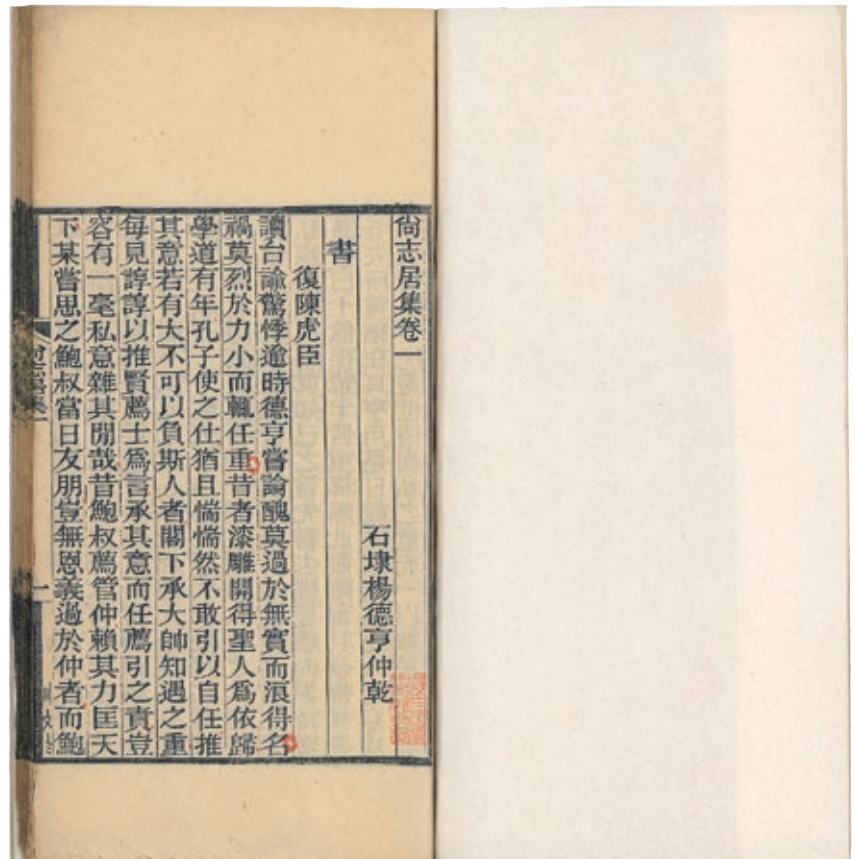 尙志居集卷一
石埭楊德亨仲乾
書
復陳虎臣
讀台諭驚悸逾時德亨嘗論醜莫過於無實而浪得名
禍莫烈於力小而輒任重昔者漆雕開得聖人爲依歸
學道有年孔子使之仕猶且惴惴然不敢引以自任推
其意若有大不可以負斯人者閣下承大帥知遇之重
每見諄諄以推賢薦士爲言承其意而任薦引之責豈
容有一毫私意雜其閒哉昔鮑叔薦管仲賴其力匡天
下某嘗思之鮑叔當日友朋豈無恩義過於仲者而鮑
尙志居集一
一